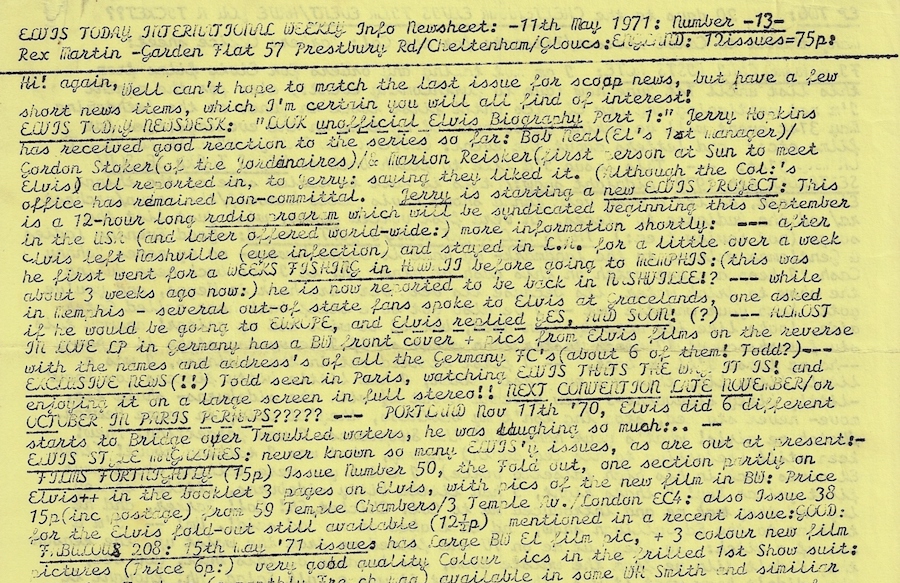 ELVIS TODAY INTERNATIONAL WEEKLY Info Newsheet: -11th May 1971: Number -13-
Rex Martin -Garden Flat 57 Prestbury Rd/Cheltenham/Gloucs:ENGLAND: 12issues=75p:
Hi! again, Well can't hope to match the last issue for scoop news, but have a few
short news items, which I'm certain you will all find of interest!
ELVIS TODAY NEWSDESK: "LOOK unofficial Elvis Biography Part 1:" Jerry Hopkins
has received good reaction to the series so far: Bob Neal(El's 1st manager)/
Gordon Stoker(of the Jordanaires)/& Marion Reisker(first person at Sun to meet
Elvis) all reported in, to Jerry: saying they liked it. (Although the Col:'s
office has remained non-committal. Jerry is starting a new ELVIS PROJECT: This
is a 12-hour long radio program which will be syndicated beginning this September
in the USA (and later offered world-wide:) more information shortly! --- after
Elvis left Nashville (eye infection) and stayed in L.A. for a little over a week
he first went for a WEEKS FISHING in HAWAII before going to MEMPHIS:(this was
about 3 weeks ago now:) he is now reported to be back in NASHVILLE!? --- while
in Memphis - several out-of state fans spoke to Elvis at Gracelands, one asked
if he would be going to EUROPE, and Elvis replied YES, AND SOON! (?) --- ALMOST
IN LOVE LP in Germany has a BW front cover + pics from Elvis films on the reverse
with the names and address's of all the Germany FC's(about 6 of them! Todd?)---
EXCLUSIVE NEWS(!!) Todd seen in Paris, watching ELVIS THATS THE WAY IT IS! and
enjoying it on a large screen in full stereo!! NEXT CONVENTION LATE NOVEMBER/or
OCTOBER IN PARIS PERHAPS????? --- PORTLAND Nov 11th '70, Elvis did 6 different
starts to Bridge over Troubled waters, he was laughing so much:.. --
ELVIS STYLE MAGAZINES: never known so many ELVIS'y issues, as are out at present:-
FILMS FORTNIGHTLY (15p) Issue Number 50, the Fold out, one section partly on
Elvis++ in the booklet 3 pages on Elvis, with pics of the new film in BW: Price
15p(inc postage) from 59 Temple Chambers/3 Temple Av./London EC4: also Issue 38
for the Elvis fold-out still available (12½p) mentioned in a recent issue:GOOD:
FABULOUS 208: 15th May '71 issues has large BW El film pic, + 3 colour new film
pictures (Price 6p:) very good quality Colour pics in the frilled 1st Show suit:
available in some WH Smith and similiar